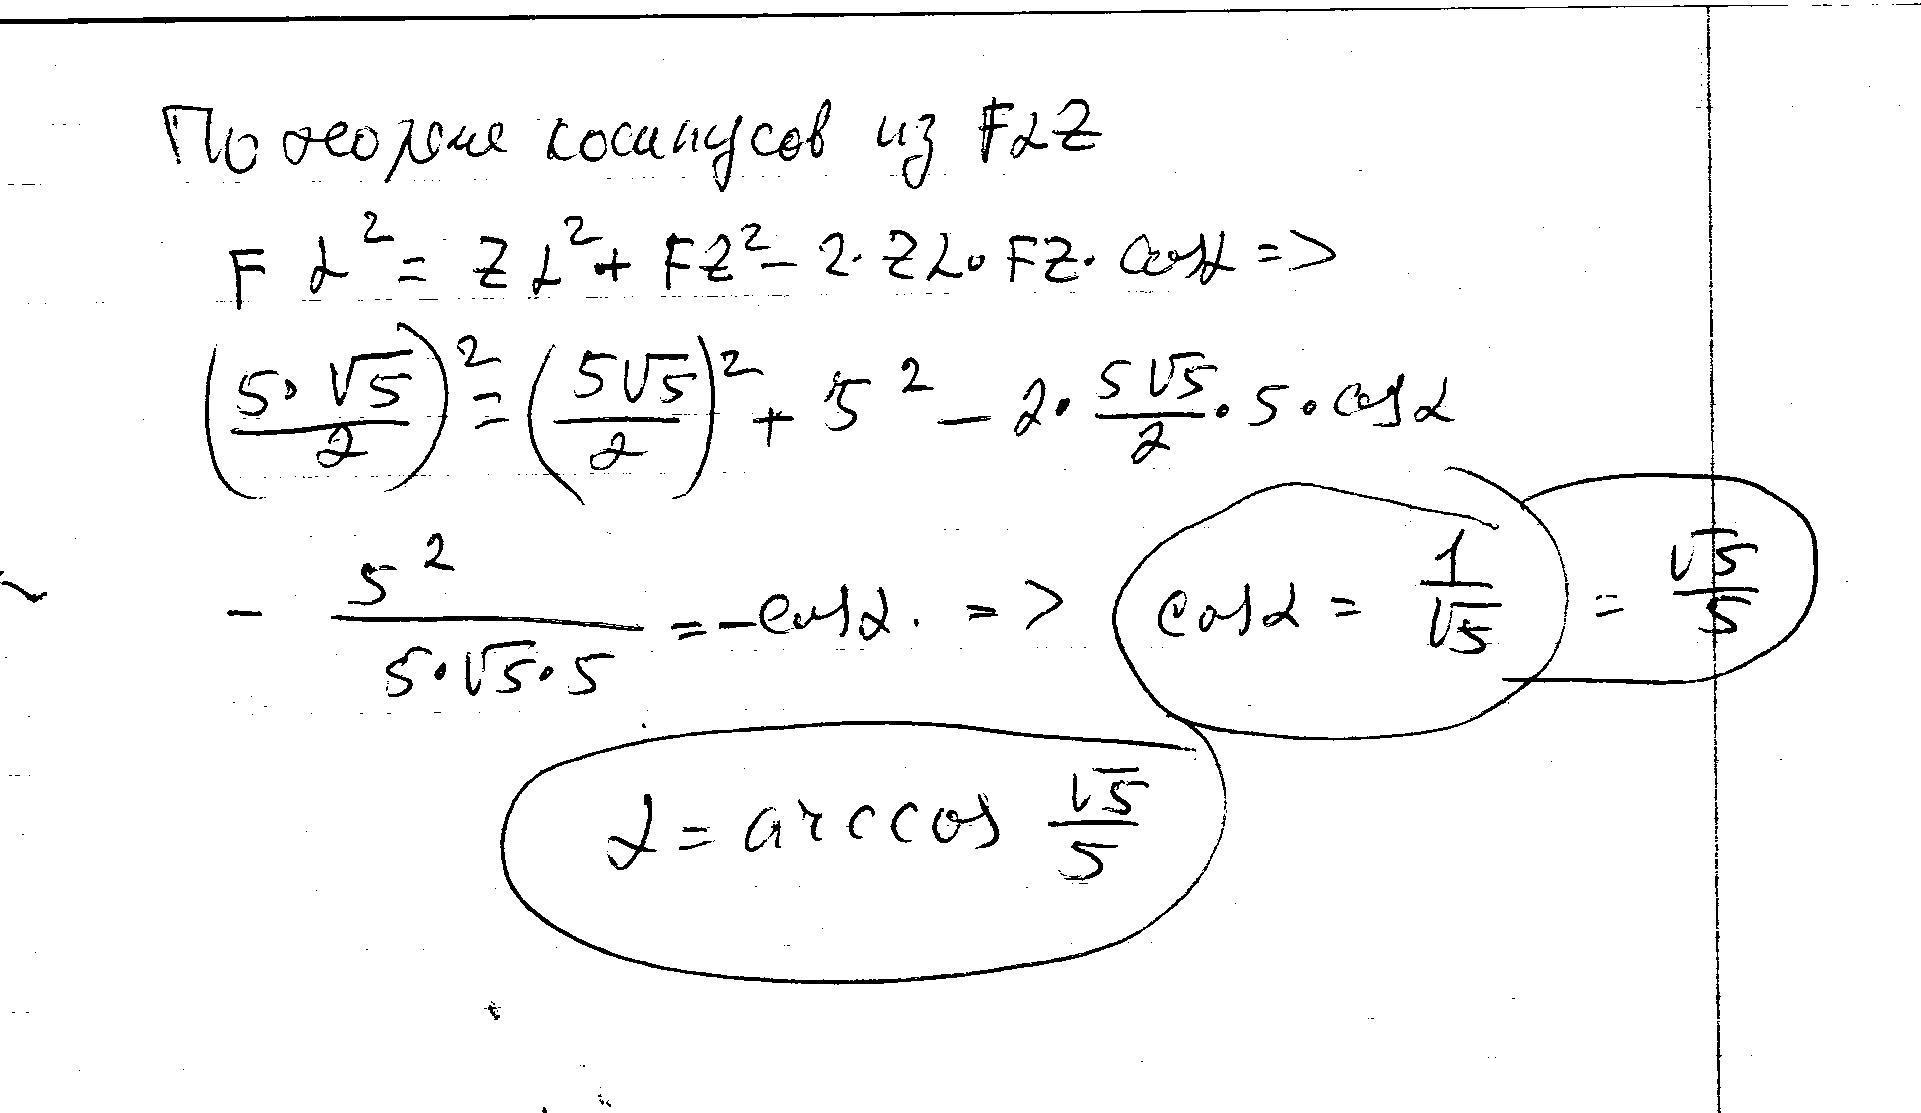 По теореме косинусов из FLZ
FL² = ZL² + FZ² - 2·ZL·FZ·cosα =>
(5·√5/2)² = (5√5/2)² + 5² - 2·5√5/2·5·cosα
- 5²/(5·√5·5) = -cosα. => cosα = 1/√5 = √5/5
α = arccos √5/5